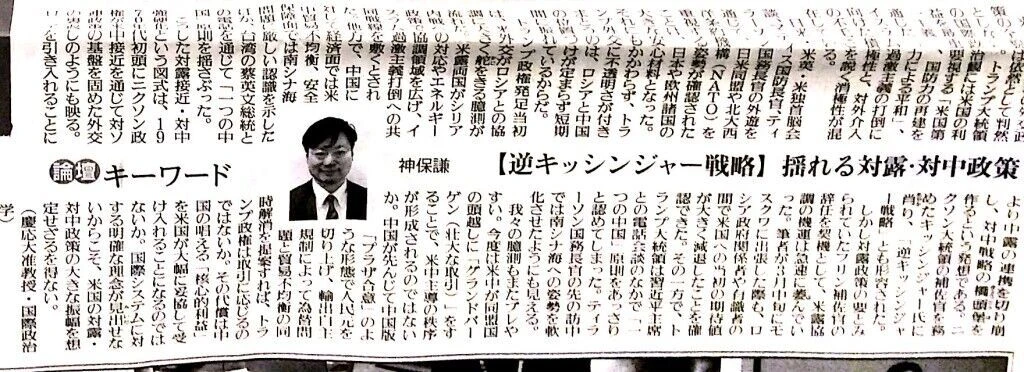 論壇キーワード
神保謙
【逆キッシンジャー戦略】揺れる対露・対中政策
として判然
。トランプ大統領
には米国の利
要視する「米国第
、国防力の再建を
力による平和」、
過激主義の打倒に
極性と、対外介入
を嫌う消極性が混
米英・米独首脳会
ス国防長官・ティ
国務長官の外遊が
日米同盟や北大西
構（NATO）を
姿勢が確認された
日本や欧州諸国の
心材料となった。
それにもかかわらず、トラ
交に不透明さが付き
とうのは、ロシアと中国
けが定まらず短期
れているからだ。
トランプ政権発足当初
外交がロシアとの協
く舵をきる臆測が
流れた。米露両国がシリア
の対応やエネルギー
政策で協調領域を広げ、イ
過激主義打倒への共
同戦線を敷くとされ
た。他方で、中国に
対して経済面では米
中貿易不均衡、安全
保障面では南シナ海
問題で厳しい認識を示した
ほか、台湾の蔡英文総統と
の電話を通じて「一つの中
国」原則を揺さぶった。
こうした対露接近・対中
強硬という図式は、19
70年代初頭にニクソン政
権が米中接近を通じて対ソ
抑止の基盤を固めた外交
の裏返しのようにも映る。
ロシアを引き入れることに
より中露の連携を切り崩
し、対中戦略の橋頭堡を
作るという発想である。ニ
クソン大統領の補佐官を務
めたキッシンジャー氏に
肖り、「逆キッシンジャ
ー戦略」とも形容された。
しかし対露政策の要とみ
られていたフリン補佐官の
辞任を契機として、米露協
調の機運は急速に萎んでい
った。筆者が3月中旬にモ
スクワに出張した際も、ロ
シア政府関係者や有識者の
間で米国への当初の期待値
が大きく減退したことを確
認できた。その一方で、ト
ランプ大統領は習近平主席
との電話会談のなかで「一
つの中国」原則をあっさり
と認めてしまった。ティラ
ーソン国務長官の先の訪中
では南シナ海への姿勢を軟
化させたようにも見える。
我々の臆測もまたブレや
すい。今度は米中が同盟国
の頭越しに「グランドバー
ゲン（壮大な取引）」をす
ることで、米中主導の秩序
が形成されるのではない
か。中国が先んじて中国版
「プラザ合意」のよ
うな形態で人民元を
切り上げ、輸出自主
規制によって為替問
題と貿易不均衡の同
時解消を提案すれば、トラ
ンプ政権は取引に応じるの
ではないか。その代償は中
国の唱える「核心的利益」
を米国が大幅に妥協して受
け入れることになるのでは
ないか。国際システムに対
する明確な理念が見出せな
いからこそ、米国の対露・
対中政策の大きな振幅を想
定せざるを得ない。
（慶応大准教授・国際政治
学）